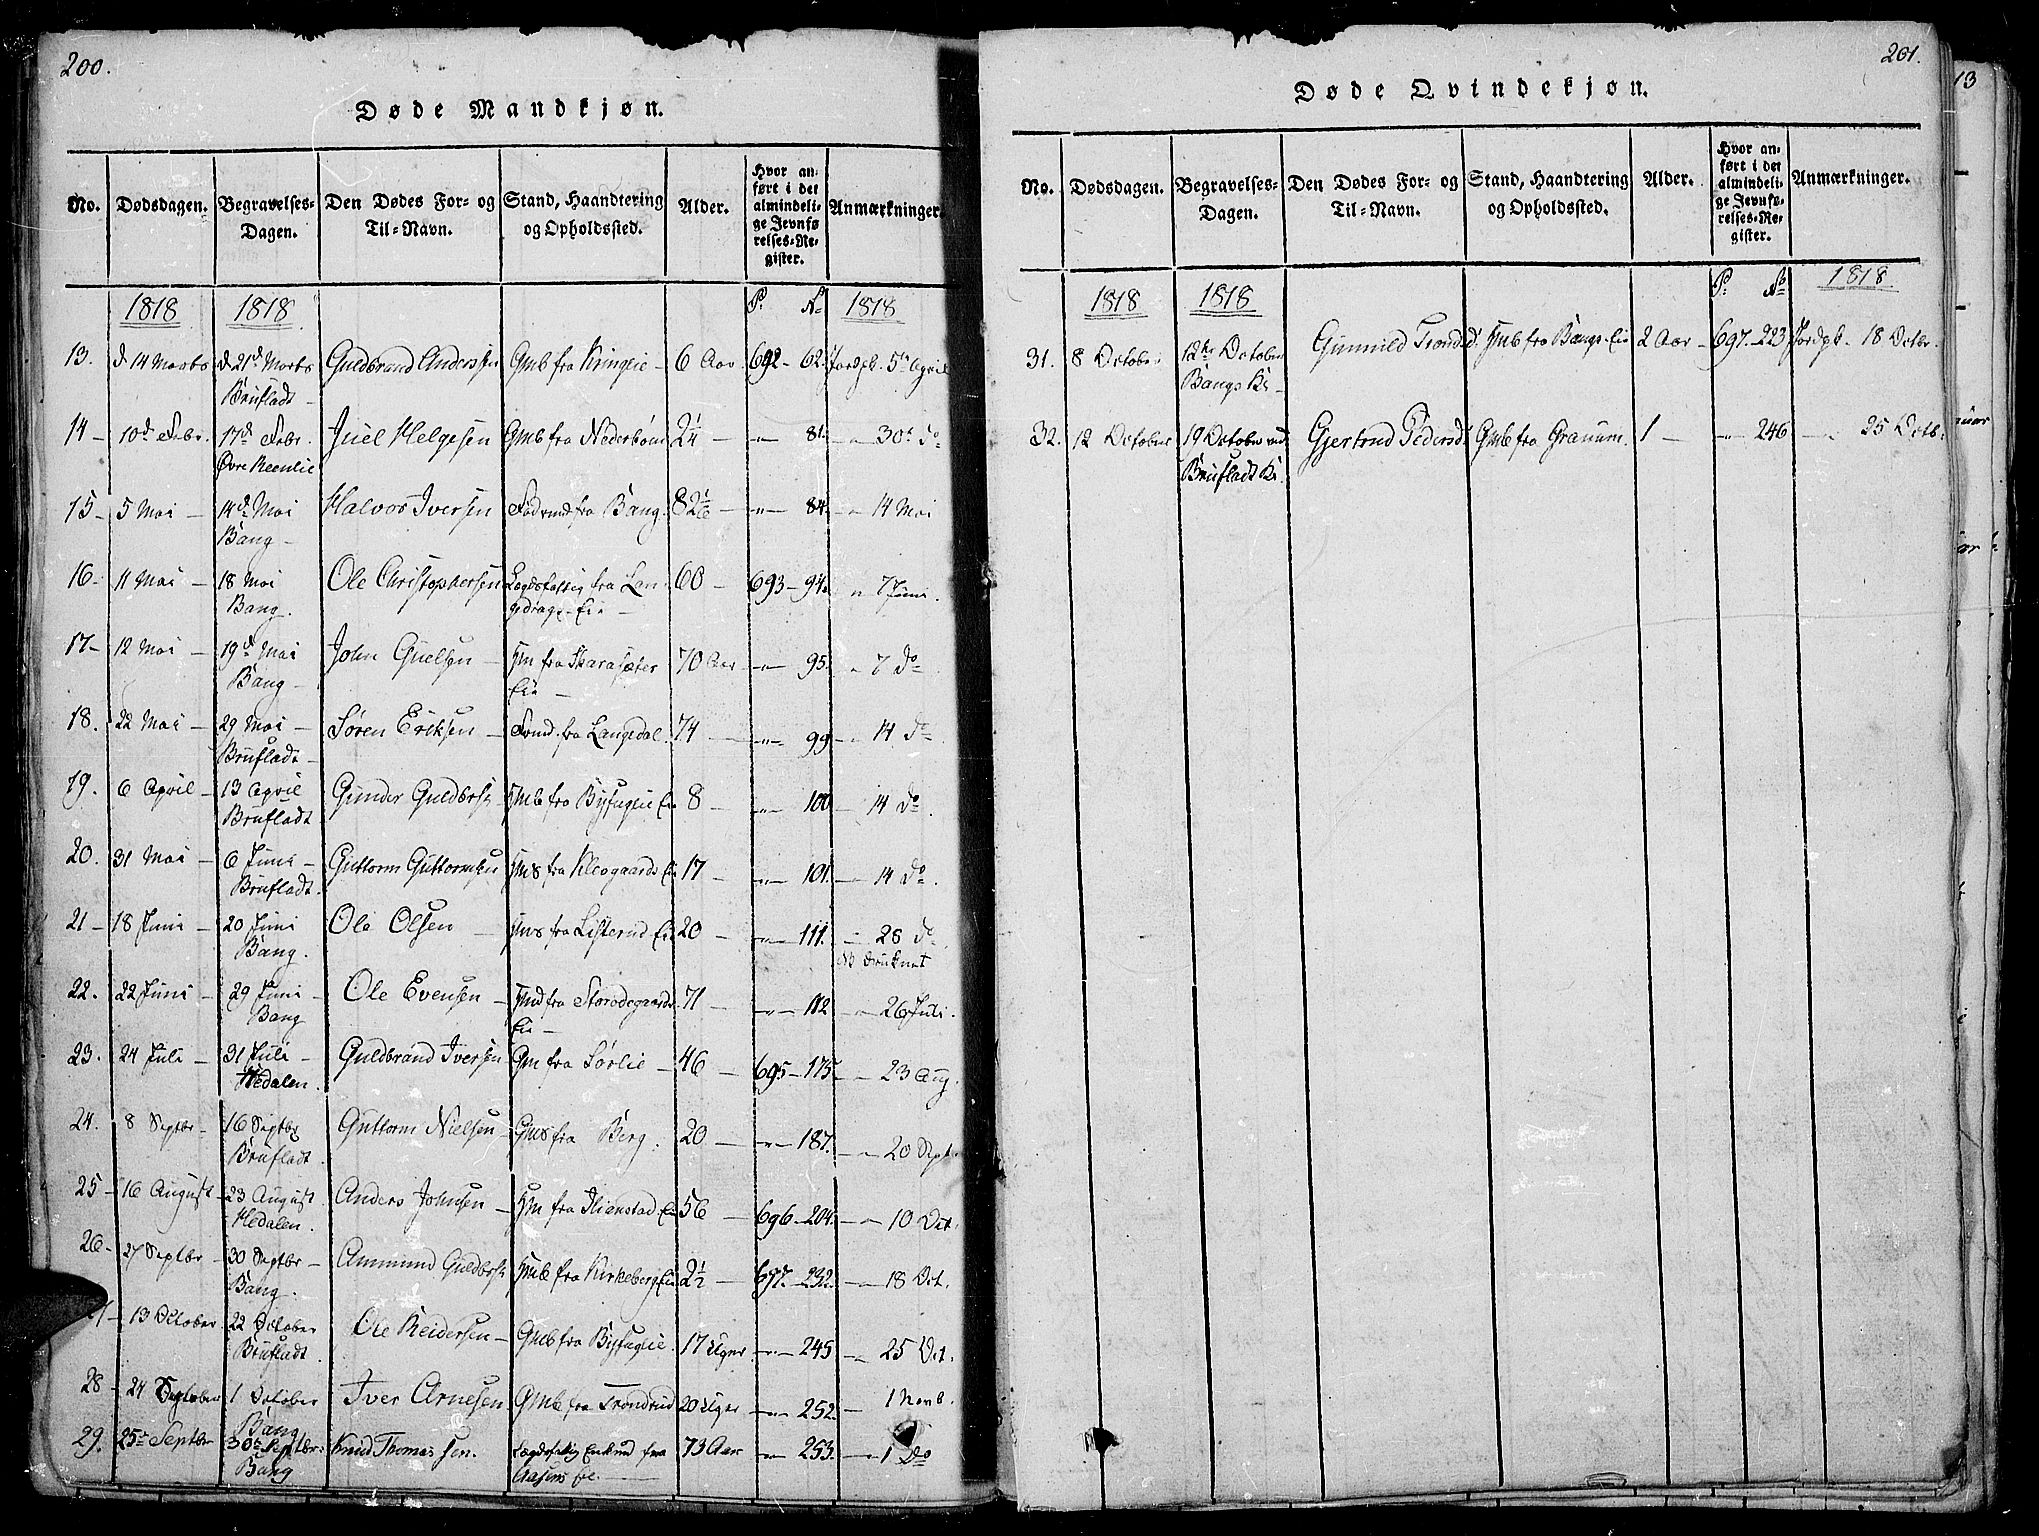 200.
Døde Mandkjøn.
No. Dødsdagen. Begravelses-Dagen. Den Dødes For- og Til-Navn. Stand, Haandtering og Opholdssted. Alder. Hvor anført i det almindelige Jevnførelses-Register. Anmærkninger.
1818 1818 P. No 1818
13. d 14 Marts d 21d Marts Guldbrand Anderssen Gmb fra Kringlie 6 Aar. 692 - 62. Jordpk. 5te April
Brufladt
14 - 10d Febr. 17d Febr. Juel Helgesen Gmb fra Nederbøen 2¼ - " - 81. - " 30t do
Øvre Reenlie
15 - 5 Mai - 14d Mai Halvor Iversen Fødermd fra Bang 82 1/6 - " - 84. - " 14 Mai
Bang -
16 - 11 Mai - 18 Mai Ole Christophersen Legdsfattig fra Lan- 60 - 693 - 94. " 7 Juni.
Bang. gedrags-Eie -
17 - 12 Mai - 19d Mai John Guelsen - Hm fra Skarasæter 70 Aar - " - 95. " 7 do
Bang - Eie -
18. 22 Mai - 29 Mai Søren Ericksen - Formd. fra Langedal 74 - " - 99 - " 14 do
Brufladt -
19. 6 April - 13 April Gunder Guldbrs. Hmb fra Byfuglie Ei 8 - " - 100 - 14 do.
Brufladt.
20. 31 Mai - 6 Juni - Guttorm Guttormsen Hms fra Klevgaards Ei 17 - " - 101. - 14 do.
Brufladt.
21 - 18 Juni - 20 Juni Ole Olsen - Hms fra Listerud Ei 20 - " - 111. - 28 do
Bang. NB Druknet
22. 22 Juni - 29 Juni - Ole Evensen - Hmd fra Storødegaards 71 - " - 112 - " 26 Juli.
Bang Eie -
23. 24 Juli - 31 Juli - Guldbrand Iversen Gm fra Sørlie - 46 - 695 - 175 - 23 Aug.
Hedalen.
24. 8 Septbr - 16 Septbr Guttorm Nielsen - Gms fra Berg. 20 - " - 187. - " 20 Sept.
Brufladt.
25 - 16 August - 23 August Anders Johnsen - Hm fra Ilienstad Ei 56 - 696 - 204. - " - 10 Oct.
Hedalen.
26 - 27 Septbr - 30 Septbr - Ammund Guldbrs. Hmb fra Kirkeberg Ei 2½ - 697. - 232. - " 18 Oct.
Bang.
- 13 October 22 October Ole Reidersen - Gmb fra Byfuglie. 17 Uger - " - 245 - " 25 Oct.
Brufladt.
28 - 24 September 1 October Iver Arnesen Gmb fra Trondrud 20 Uger - " - 252. - 1 Novb.
Bang
29. 25d Septbr 30t Septbr. Knud Thomassen. Lægdsfattig Enkmd fra 73 Aar - " - 253. - " - 1 do
Bang Aasens Eie.
201.
Døde Qvindekjøn.
No. Dødsdagen. Begravelses-Dagen. Den Dødes For- og Til-Navn. Stand, Haandtering og Opholdssted. Alder. Hvor anført i det almindelige Jevnførelses-Register. Anmærkninger.
1818 1818 P. No 1818
31. 8 October 12te October Gunnild Tronds d. Hmb fra Bangs-Eie 2 Aar - 697. - 223 Jordpk - 18 Octbr.
Bangs Ki -
32. 12 October 19 October ved Gjertrud Pedersd. Gmb fra Granum. 1 - " - 246 - " 25 Octb.
Brufladt Ki.
13